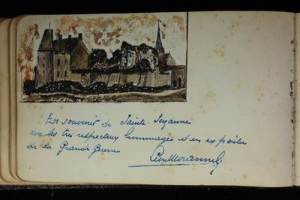 En souvenir de Sainte Suzanne
avec les très respectueux hommages d'un ex poilu
de la Grande Guerre